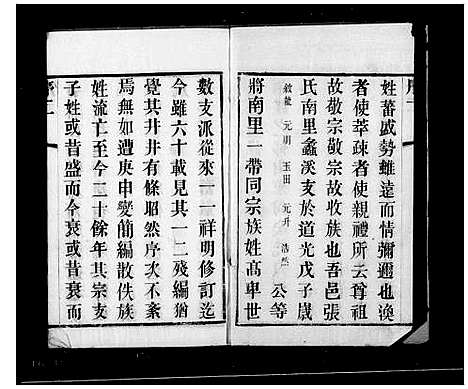 序一
姓蕃戚勢雖遠而情彌邇也渙
者使萃疎者使親禮所云尊祖
故敬宗敬宗故收族也吾邑張
氏南里蠡溪支於道光戊子歲
敘龍 元明 玉田 元升 浩然 公等
將南里一帶同宗族姓高卑世
數支派從來一一祥明修訂迄
今雖六十載見其一二殘編猶
覺其井井有條昭然序次不紊
焉無如遭庚申變簡編散佚族
姓流亡至今三十餘年其宗支
子姓或昔盛而今衰或昔衰而
序二